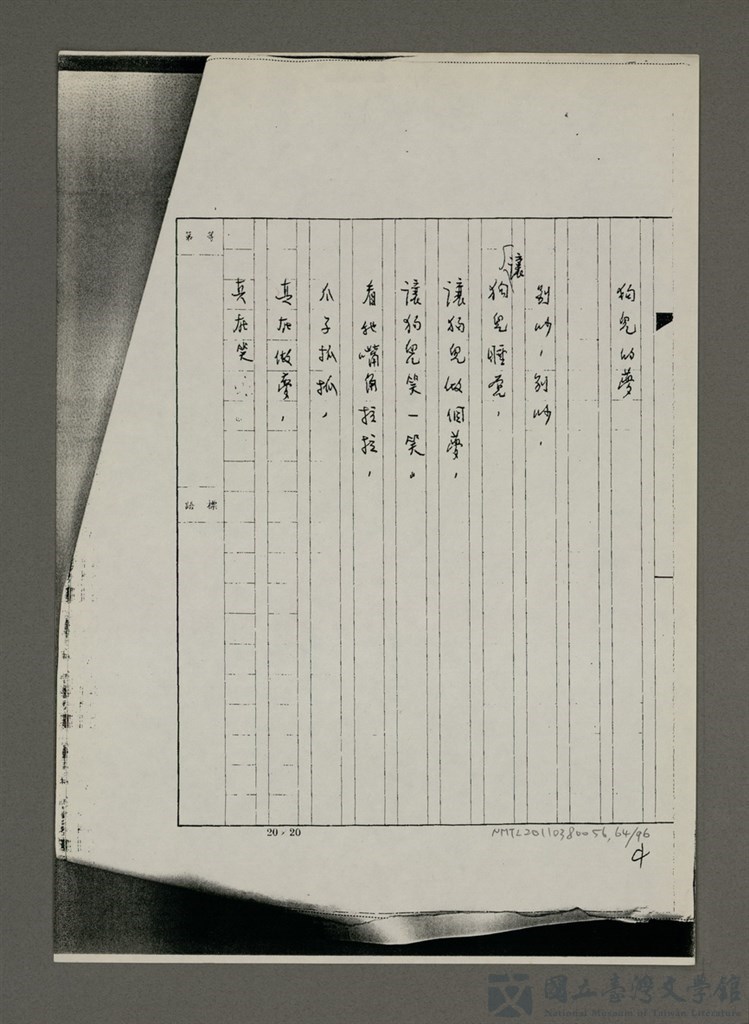 狗兒的夢
別吵，別吵，
讓狗兒睡覺，
讓狗兒做個夢，
讓狗兒笑一笑。
看牠嘴角拉拉，
爪子抓抓，
真在做夢，
真在笑……
20×20
NMTL20110380056, 64/96
4
國立臺灣文學館
National Museum of Taiwan Literature